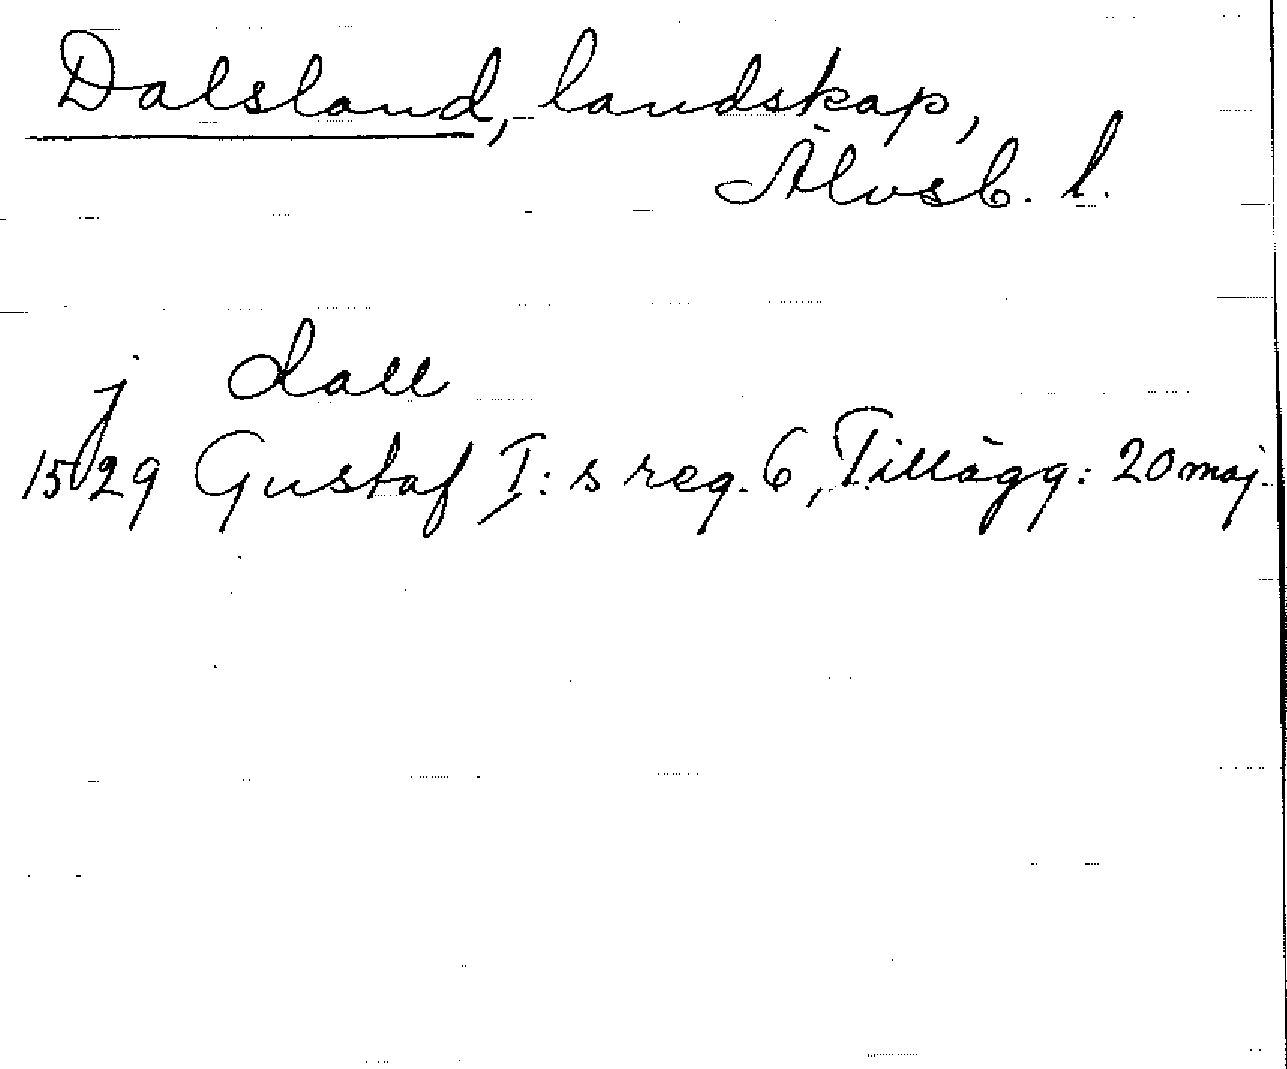 Dalsland, landskap,
Älvsb. l.
j dall
1529 Gustaf I:s reg. 6, Tillägg: 20 maj.